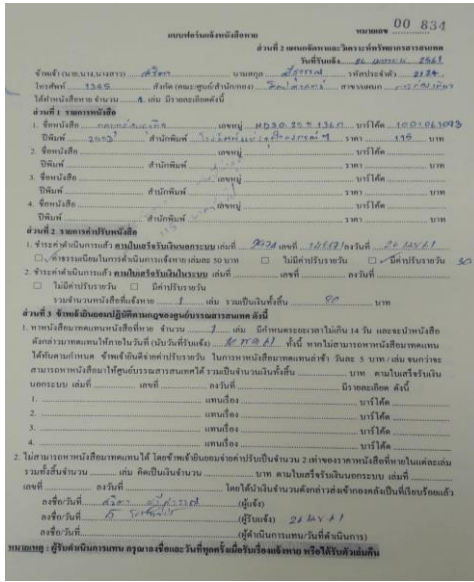 แบบฟอร์มแจ้งหนังสือหาย
หมายเลข 00 834
ส่วนที่ 2 แผนกจัดหาและวิเคราะห์ทรัพยากรสารสนเทศ
วันที่รับแจ้ง 26 2561
ข้าพเจ้า (นาย,นาง,นางสาว) นามสกุล รหัสประจำตัว 2124
โทรศัพท์ 1365 สังกัด (คณะ/ศูนย์/สำนัก/กอง) สาขา/แผนก
ได้ทำหนังสือหาย จำนวน 1 เล่ม มีรายละเอียดดังนี้
ส่วนที่ 1 รายการหนังสือ
1. ชื่อหนังสือ เลขหมู่ บาร์โค้ด
ปีพิมพ์ 2553 สำนักพิมพ์ ราคา 195 บาท
2. ชื่อหนังสือ เลขหมู่ บาร์โค้ด
ปีพิมพ์ สำนักพิมพ์ ราคา บาท
3. ชื่อหนังสือ เลขหมู่ บาร์โค้ด
ปีพิมพ์ สำนักพิมพ์ ราคา บาท
4. ชื่อหนังสือ เลขหมู่ บาร์โค้ด
ปีพิมพ์ สำนักพิมพ์ ราคา บาท
ส่วนที่ 2 รายการค่าปรับหนังสือ
1. ชำระค่าดำเนินการแล้ว ตามใบเสร็จรับเงินนอกระบบ เล่มที่ เลขที่ ลงวันที่
ค่าธรรมเนียมในการดำเนินการแจ้งหาย เล่มละ 50 บาท ไม่มีค่าปรับรายวัน มีค่าปรับรายวัน
2. ชำระค่าดำเนินการแล้ว ตามใบเสร็จรับเงินในระบบ เล่มที่ เลขที่ ลงวันที่
ไม่มีค่าปรับรายวัน มีค่าปรับรายวัน
รวมจำนวนหนังสือที่แจ้งหาย 1 เล่ม รวมเป็นเงินทั้งสิ้น บาท
ส่วนที่ 3 ข้าพเจ้ายินยอมปฏิบัติตามกฎของศูนย์บรรณสารสนเทศ ดังนี้
1. หาหนังสือมาทดแทนหนังสือที่หาย จำนวน 1 เล่ม มีกำหนดระยะเวลาไม่เกิน 14 วัน และจะนำหนังสือ
ดังกล่าวมาทดแทนให้ภายในวันที่ (นับวันที่รับแจ้ง) ทั้งนี้ หากไม่สามารถหาหนังสือมาทดแทน
ได้ทันตามกำหนด ข้าพเจ้ายินดีจ่ายค่าปรับรายวัน ในการหาหนังสือมาทดแทนล่าช้า วันละ 5 บาท / เล่ม จนกว่าจะ
สามารถหาหนังสือมาให้ศูนย์บรรณสารสนเทศได้ รวมเป็นจำนวนเงินทั้งสิ้น บาท ตามใบเสร็จรับเงิน
นอกระบบ เล่มที่ เลขที่ ลงวันที่ มีรายละเอียด ดังนี้
1. แทนเรื่อง บาร์โค้ด
2. แทนเรื่อง บาร์โค้ด
3. แทนเรื่อง บาร์โค้ด
4. แทนเรื่อง บาร์โค้ด
2. ไม่สามารถหาหนังสือมาทดแทนได้ โดยข้าพเจ้ายินยอมจ่ายค่าปรับเป็นจำนวน 2 เท่าของราคาหนังสือที่หายในแต่ละเล่ม
รวมทั้งสิ้นจำนวน เล่ม คิดเป็นเงินจำนวน บาท ตามใบเสร็จรับเงินนอกระบบ เล่มที่
เลขที่ ลงวันที่ โดยได้นำเงินจำนวนดังกล่าวส่งเข้ากองคลังเป็นที่เรียบร้อยแล้ว
ลงชื่อ/วันที่ (ผู้แจ้ง)
ลงชื่อ/วันที่ (ผู้รับแจ้ง)
ลงชื่อ/วันที่ (ผู้ดำเนินการแทน/วันที่ดำเนินการ)
หมายเหตุ : ผู้รับดำเนินการแทน กรุณาลงชื่อและวันที่ทุกครั้งเมื่อรับเรื่องแจ้งหาย หรือได้รับตัวเล่มคืน